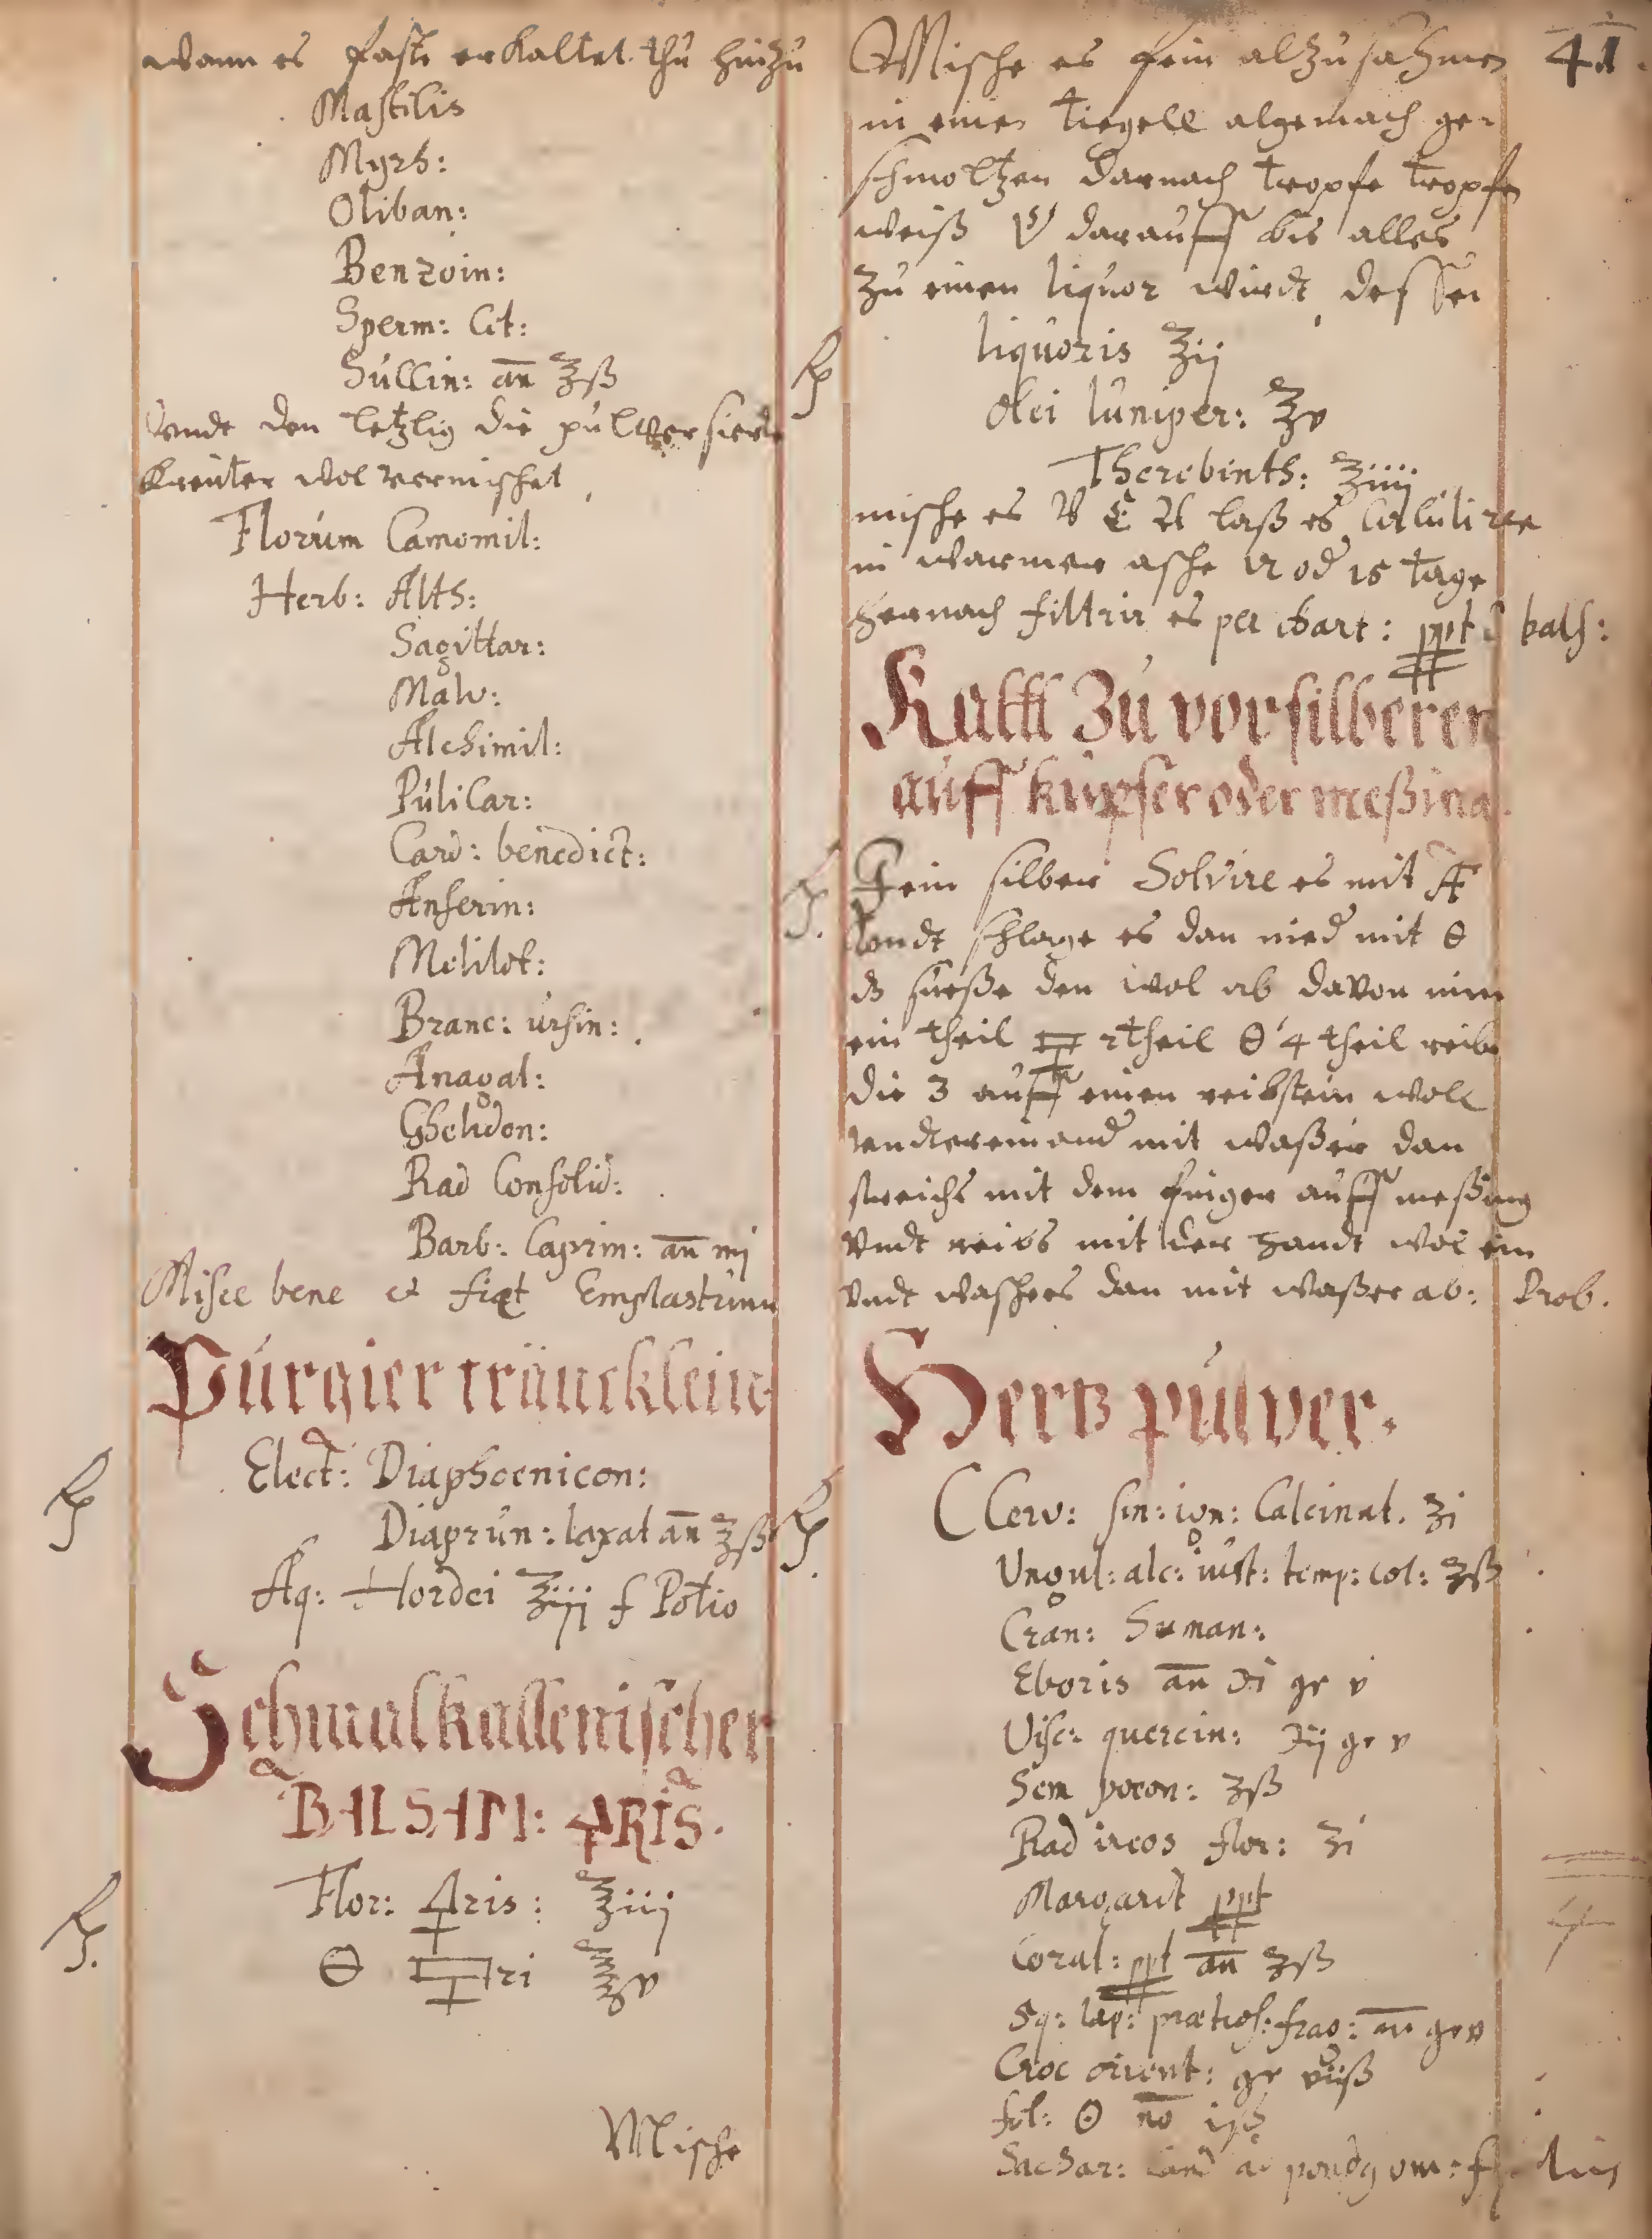 wann es fast erkaltet thu hinzu
Mastilis
Myrh:
Oliban:
Benzoin:
Sperm: Cit:
Succin: an̄ ʒß
vnde den letzlig die pulversierte
Kreuter wol vermischet,
Florum Camomil:
Herb: Alth:
Sagittar:
Malv:
Alchimil:
Pulicar:
Card: benedict:
Anserin:
Melilot:
Branc: ursin:
Anagal:
Chelidon:
Rad Consolid:
Barb: Caprin: an̄ mj
Misce bene et fiat Emplastrum
Purgier träncklein
℞ Elect: Diaphoenicon:
Diaprun: laxat an̄ ʒß
Aq: Hordei ℥iij f Potio
Schmalkallenischer
BALSAM: 🜍RIS.
℞. Flor: 🜍ris: ℥iij
🜔 🜿ri ℥v
Mische
41.
Mische es fein alzusahmen
in einen tiegell algemach ge-
schmoltzen darnach tropfe tropfe
weiß darauff bis alles
zu einen liquor wirdt, dessen
℞ liquoris ʒij
Olei Iuniper: ℥v
Therebinth: ʒiiii
mische es laß es
in warmer asche 12 od 15 tage
hernach filtrir es per chart: ppt bals:
Kalck Zu vorsilberen
auff kupfer oder meßing.
℞. Fein silber Solvire es mit
vndt schlage es dan nied mit 🜔
süeße den wol ab davon nim
ein theil 🜿 2 theil 🜔 4 theil reibe
die 3 auff einen reibstein woll
vndtereinand mit waßer dan
streichs mit dem finger auff meßing
vndt reibs mit der handt wol ein
vndt waschees dan mit waßer ab: Prob.
Hertz pulver.
℞. C Cerv: sin: ign: Calcinat. ʒi
Ungul: alc: iust: temp: col: ʒß
Cran: human:
Eboris an̄ ℈i gr v
Visc: quercin: ℈ij gr v
Sem poeon: ʒß
Rad ireos flor: ʒi
Margarit ppt
Coral: ppt an̄ ʒß
Sq: lap: prætios: frag: an̄ gr v
Croc orient: gr viiß
fol: ☉ no
Sachar: cand ad pondg om: f